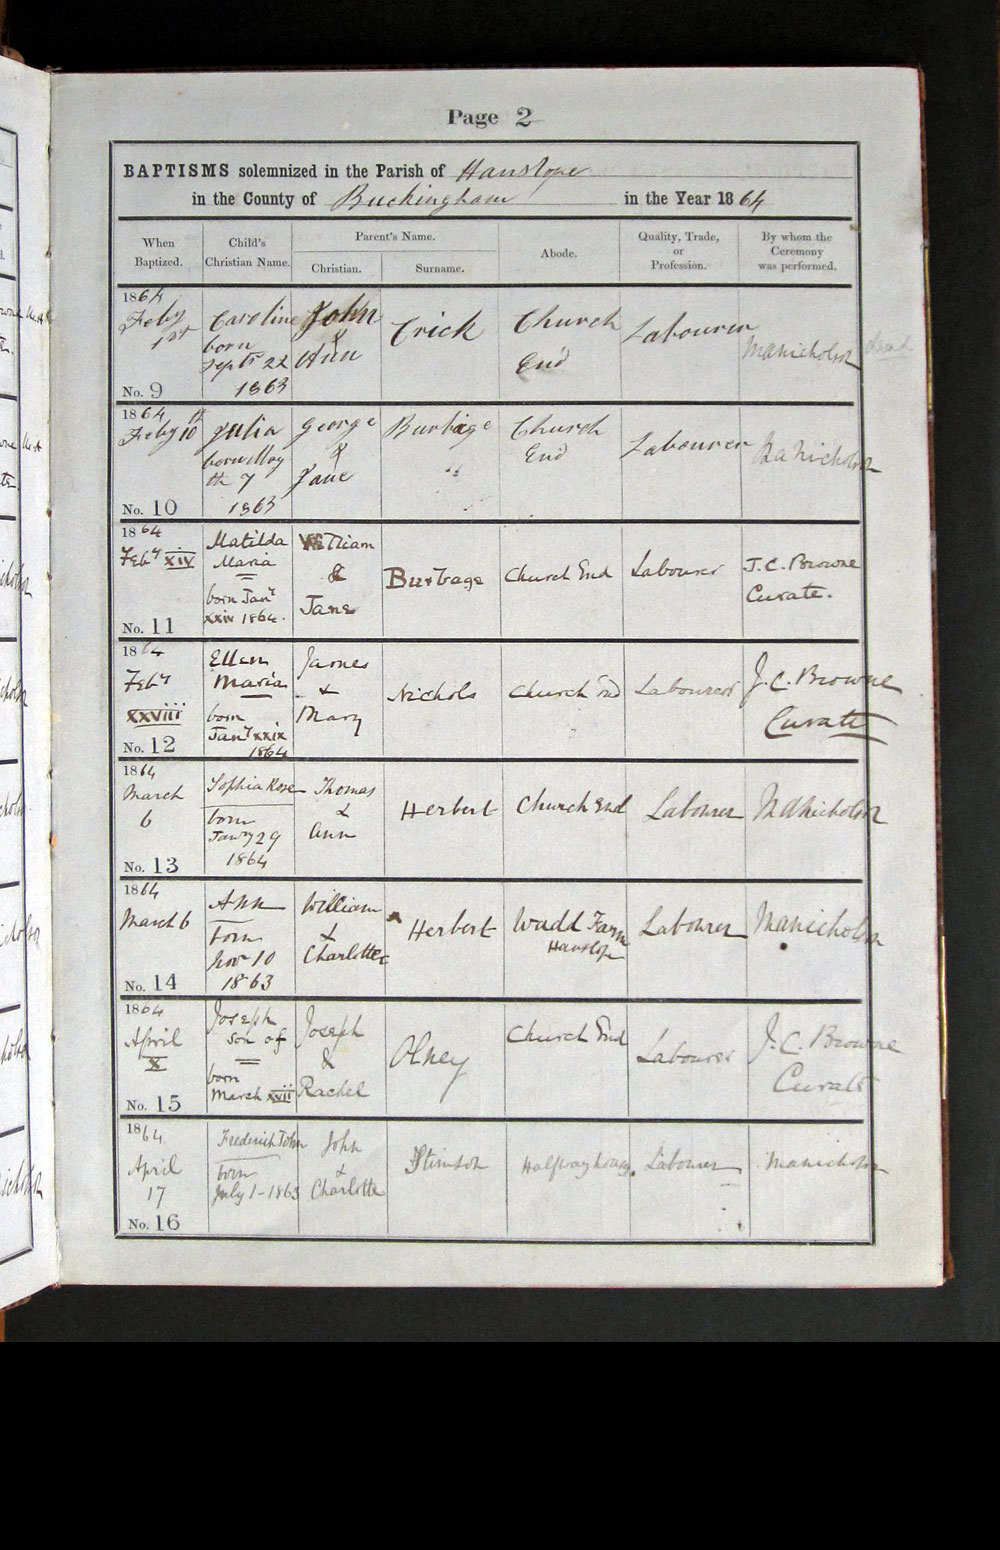 Page 2
BAPTISMS solemnized in the Parish of Hanslope
in the County of Buckingham in the Year 1864
When Baptized. Child's Christian Name. Parent's Name. Christian. Surname. Abode. Quality, Trade, or Profession. By whom the Ceremony was performed.
1864
Feby 1st
No. 9
Caroline
born
Septr 22
1863
John
&
Ann
Crick
Church
End
Labourer
MANicholson
1864
Feby 10th
No. 10
Julia
born May
th 7
1863
George
&
Jane
Burbage
"
Church
End
Labourer
MANicholson
1864
Feby XIV
No. 11
Matilda
Maria
born Jany
xxiv 1864.
William
&
Jane
Burbage
Church End
Labourer
J. C. Browne
Curate.
1864
Feby
XXVIII
No. 12
Ellen
Maria
born
Jany xxix
1864
James
&
Mary
Nichols
Church End
Labourer
J. C. Browne
Curate
1864
March
6
No. 13
Sophia Rose
born
Jany 29
1864
Thomas
&
Ann
Herbert
Church End
Labourer
MANicholson
1864
March 6
No. 14
Ann
born
Novr 10
1863
William
&
Charlotte
Herbert
Wadd Farm
Hanslope
Labourer
MANicholson
1864
April
X
No. 15
Joseph
son of
born
March xvii
Joseph
&
Rachel
Olney
Church End
Labourer
J. C. Browne
Curate
1864
April
17
No. 16
Frederick John
born
July 1-1863
John
&
Charlotte
Stimson
Halfway house.
Labourer
MANicholson